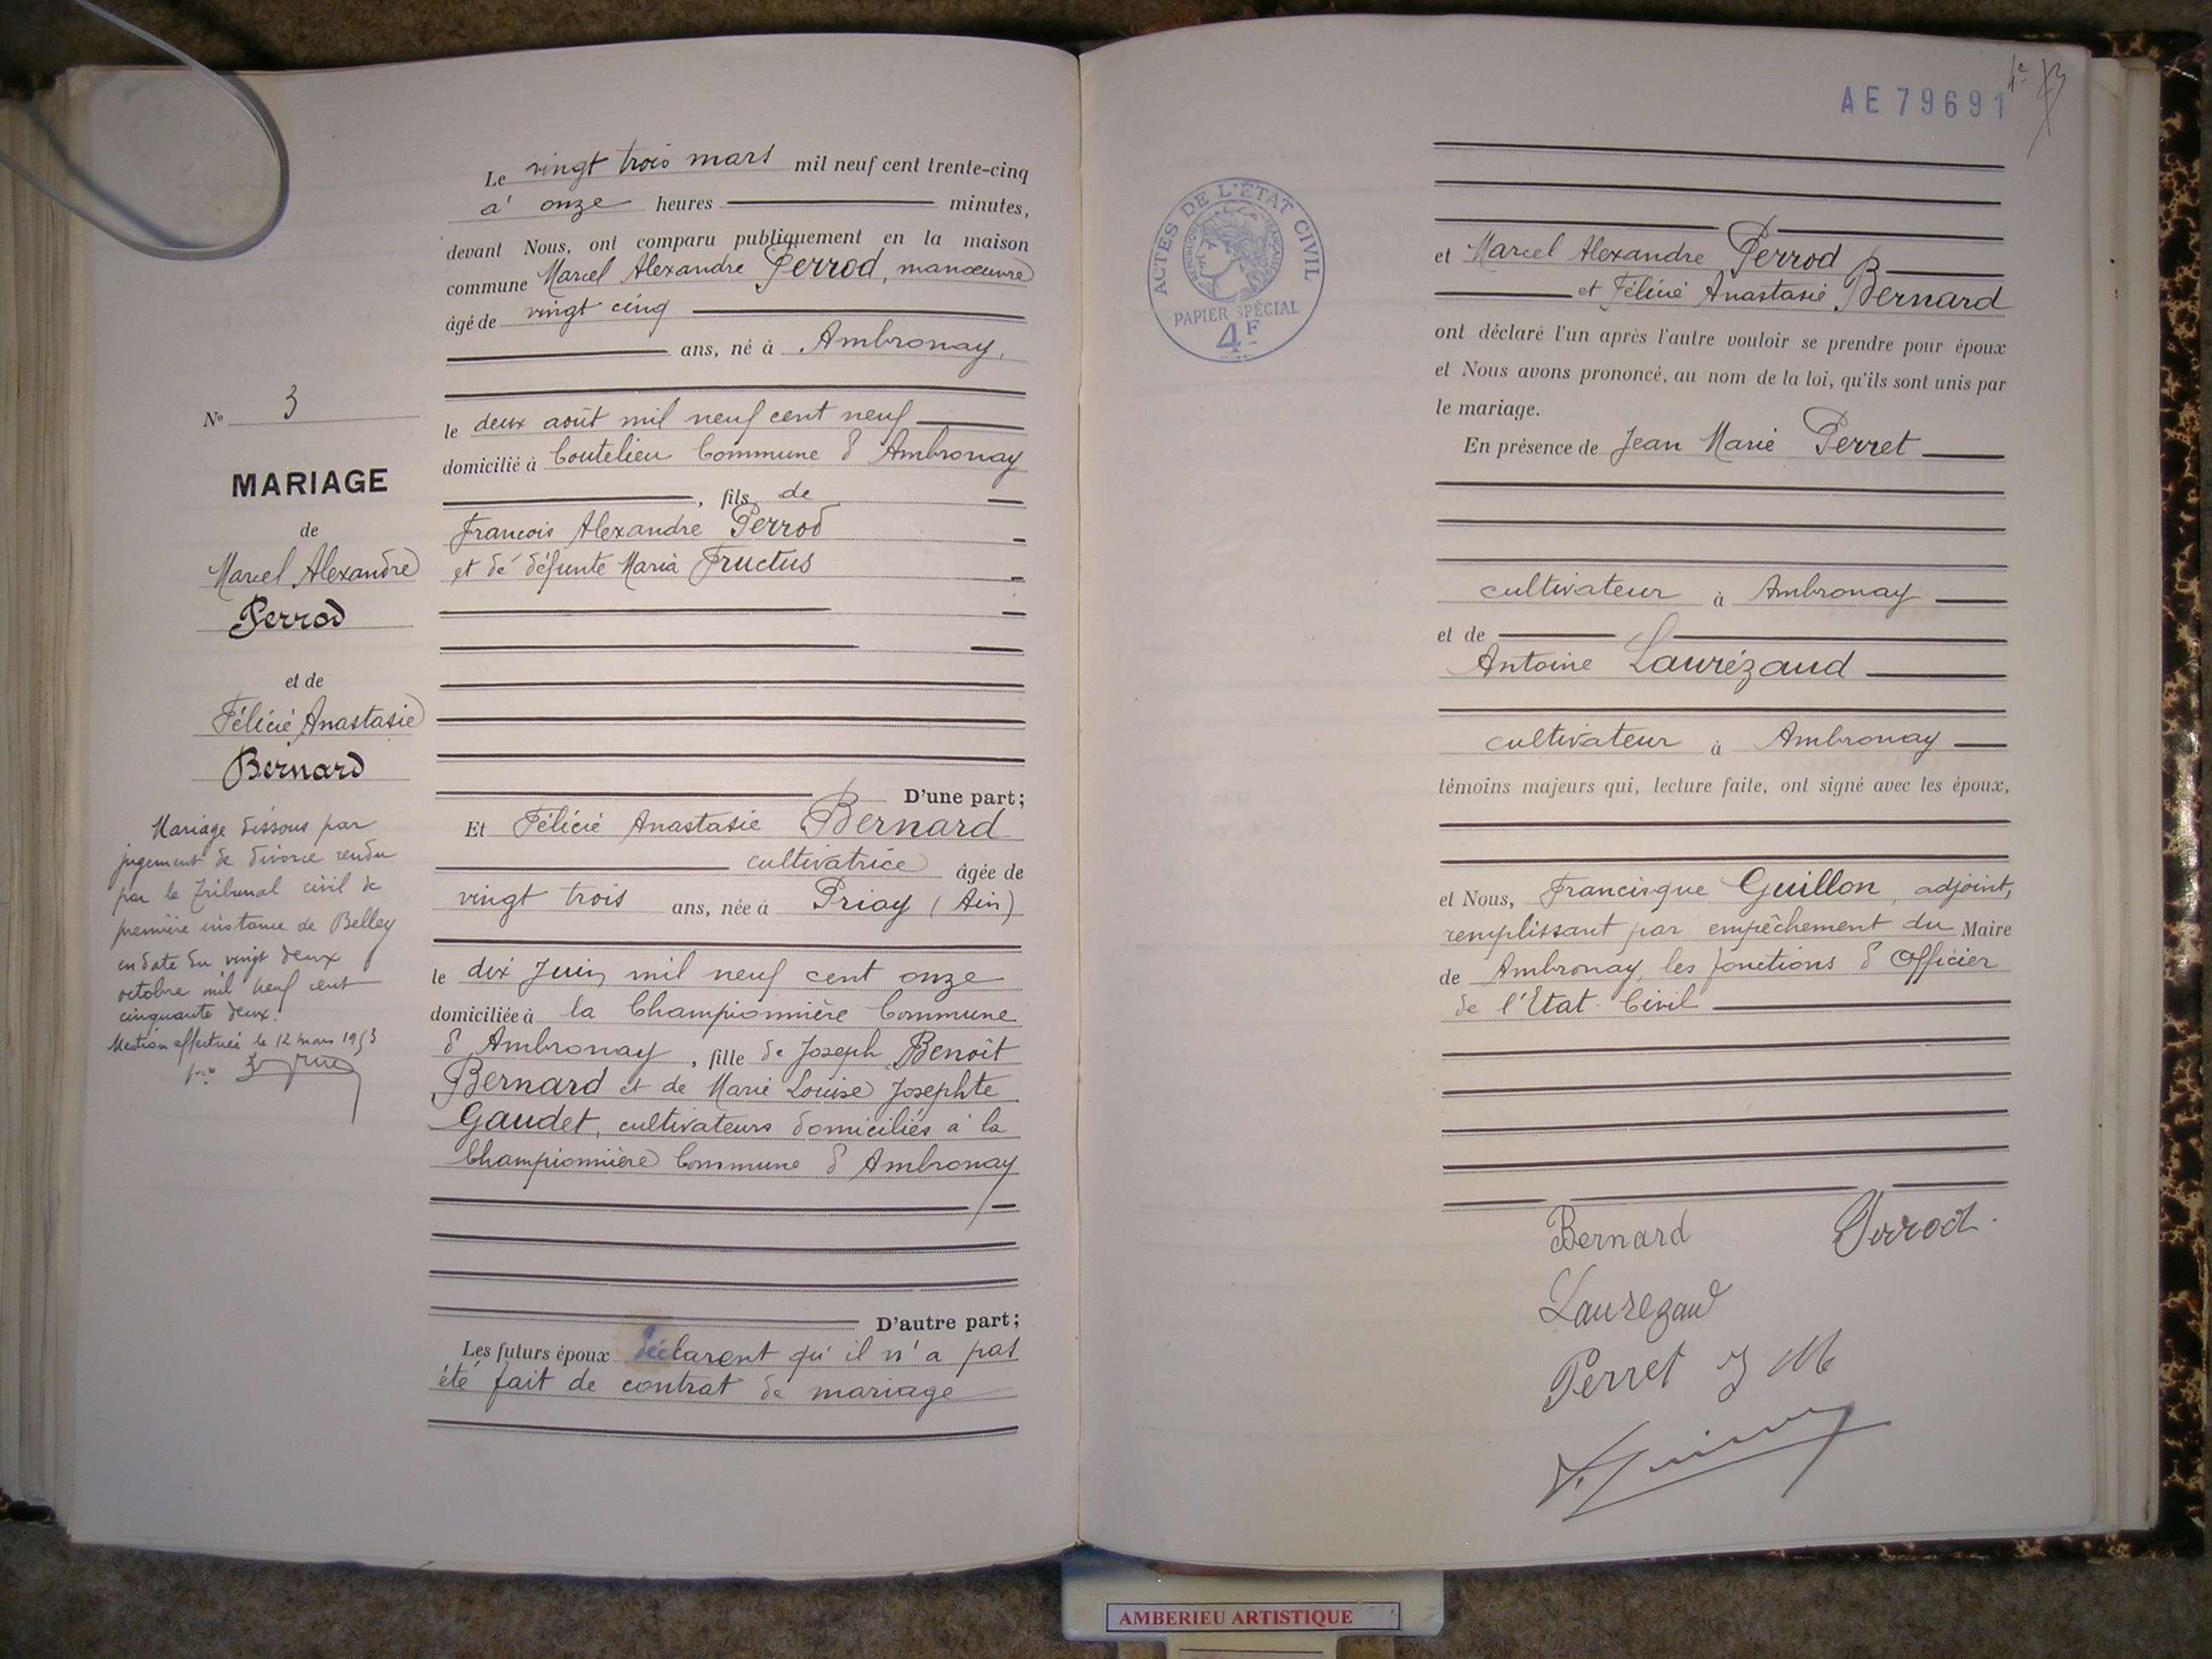 Le vingt trois mars mil neuf cent trente-cinq
à onze heures minutes,
devant Nous, ont comparu publiquement en la maison
commune Marcel Alexandre Perrod, manœuvre
âgé de vingt cinq
ans, né à Ambronay,
le deux août mil neuf cent neuf
domicilié à Coutelieu Commune d'Ambronay
, fils de
François Alexandre Perrod
et de défunte Maria Fructus
D'une part;
Et Félicie Anastasie Bernard
cultivatrice âgée de
vingt trois ans, née à Priay (Ain)
le dix Juin mil neuf cent onze
domiciliée à la Championnière Commune
d'Ambronay, fille de Joseph Benoît
Bernard et de Marie Louise Josephte
Gaudet, cultivateurs domiciliés à la
Championnière Commune d'Ambronay
D'autre part;
Les futurs époux déclarent qu'il n'a pas
été fait de contrat de mariage
No 3
MARIAGE
de
Marcel Alexandre
Perrod
et de
Félicie Anastasie
Bernard
Mariage dissous par
jugement de divorce rendu
par le Tribunal civil de
première instance de Belley
en date du vingt deux
octobre mil neuf cent
cinquante deux.
Mention effectuée le 12 mars 1953
AE 79691
ACTES DE L'ÉTAT CIVIL
RÉPUBLIQUE FRANÇAISE
PAPIER SPÉCIAL
4F
et Marcel Alexandre Perrod
et Félicie Anastasie Bernard
ont déclaré l'un après l'autre vouloir se prendre pour époux
et Nous avons prononcé, au nom de la loi, qu'ils sont unis par
le mariage.
En présence de Jean Marie Perret
cultivateur à Ambronay
et de
Antoine Laurézaud
cultivateur à Ambronay
témoins majeurs qui, lecture faite, ont signé avec les époux,
et Nous, Francisque Guillon, adjoint,
remplissant par empêchement du Maire
de Ambronay, les fonctions d'Officier
de l'Etat-Civil
Bernard Perrod.
Laurezaud
Perret J M
AMBERIEU ARTISTIQUE